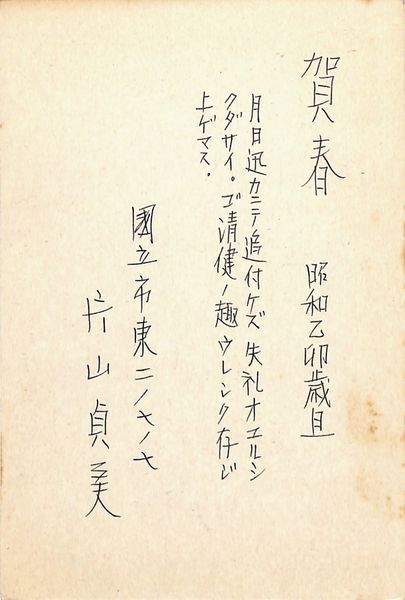 賀春 昭和乙卯歳旦
月日迅カニテ追付ケズ失礼オユルシ
クダサイ。ゴ清健ノ趣ウレシク存ジ
上ゲマス.
國立市東二ノ七ノ七
片山貞美